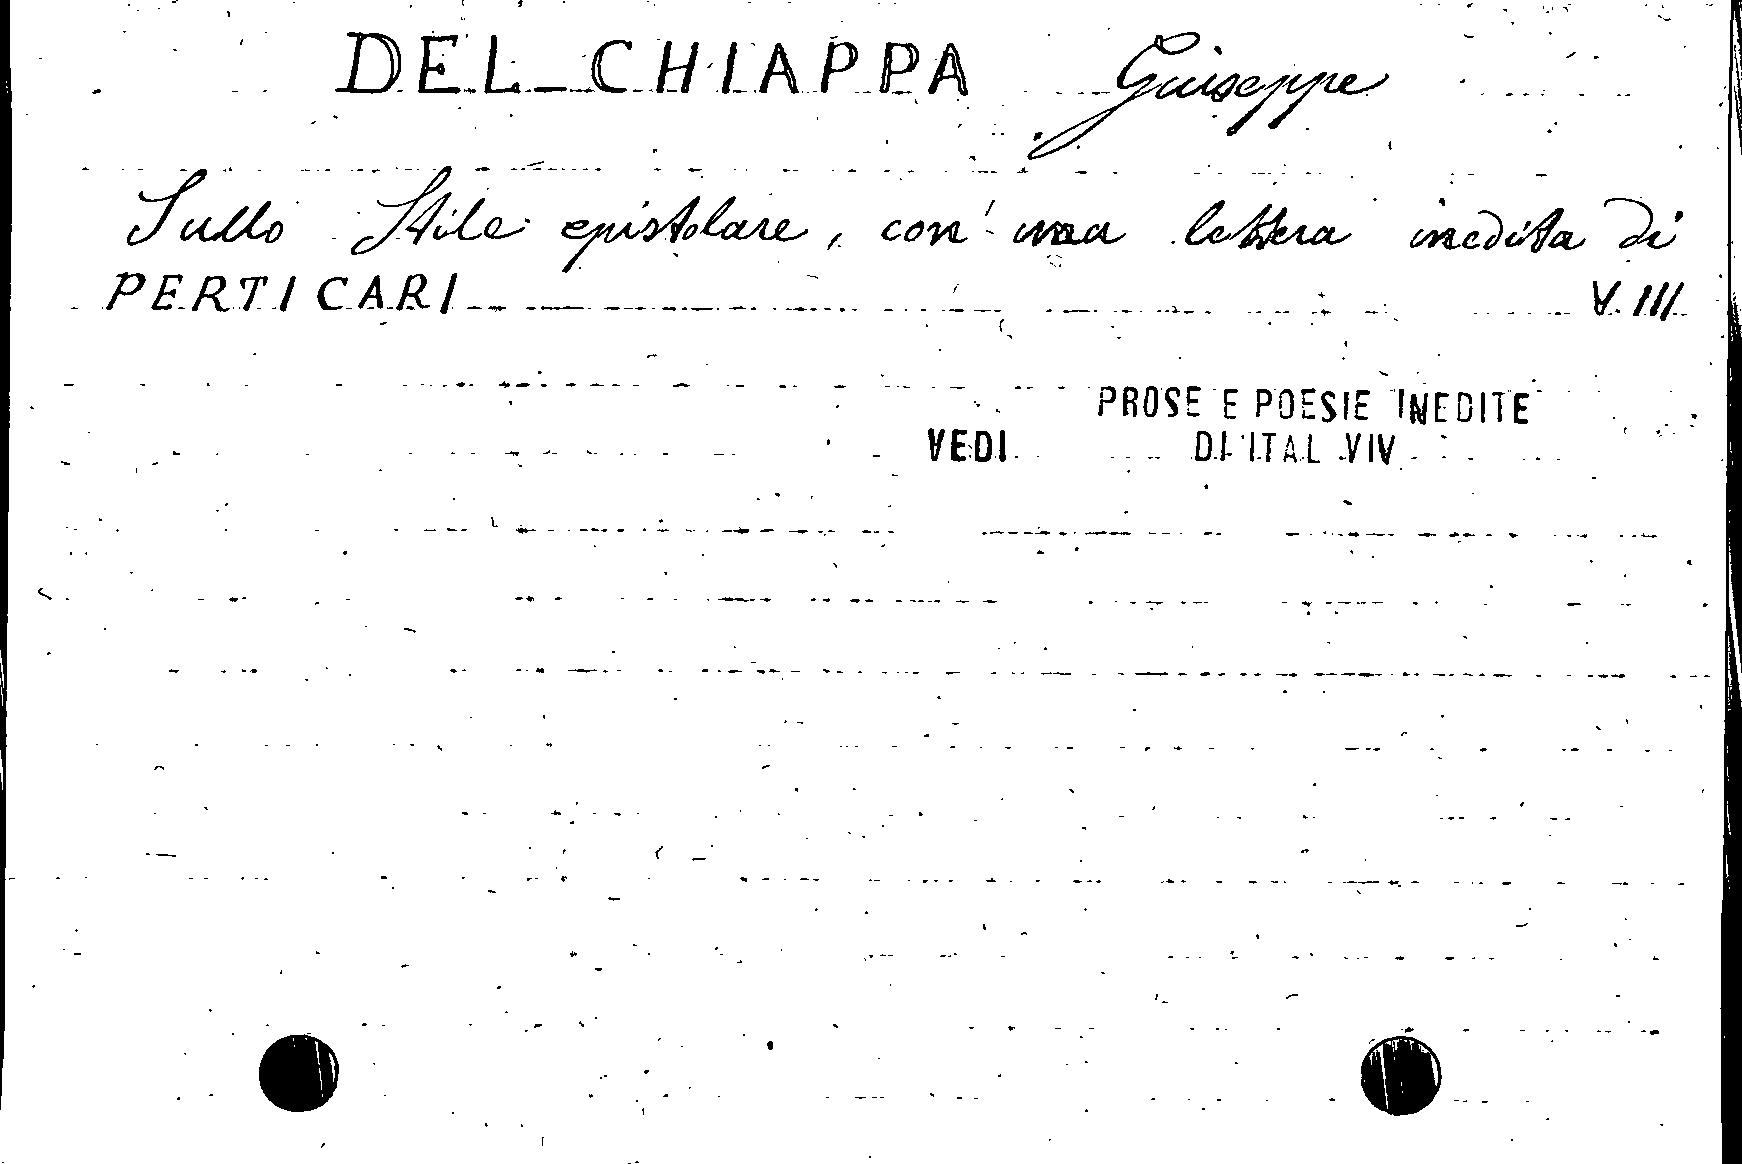 DEL CHIAPPA Giuseppe
Sullo Stile epistolare, con una lettera inedita di
PERTICARI V. III
PROSE E POESIE INEDITE
VEDI DI ITAL VIV